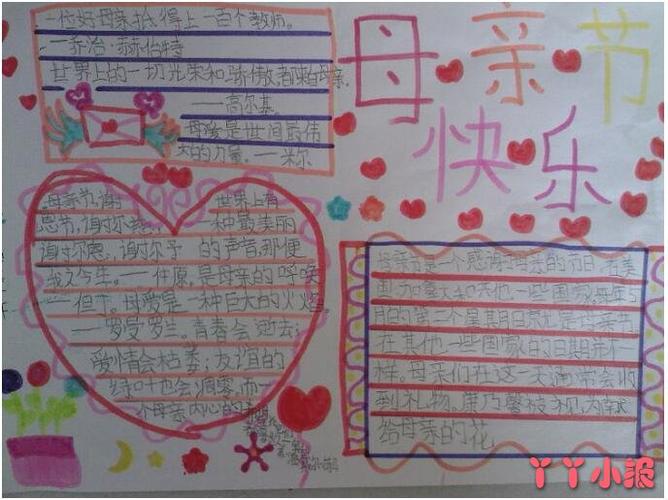 母亲节
快乐
一位好母亲抵得上一百个教师。
—乔治·赫伯特
世界上的一切光荣和骄傲,都来自母亲.
——高尔基.
母爱是世间最伟
大的力量.——米尔
世界上有
一种最美丽
的声音,那便
是母亲的呼唤
——但丁.母爱是一种巨大的火焰.
——罗曼罗兰.青春会逝去;
爱情会枯萎;友谊的
绿叶也会凋零.而一
个母亲内心的
母亲节是一个感谢母亲的节日.在美
国、加拿大和其他一些国家,每年5
月的第二个星期日就是母亲节
在其他一些国家的日期并不一
样.母亲们在这一天通常会收
到礼物.康乃馨被视为献
给母亲的花
丫丫小报